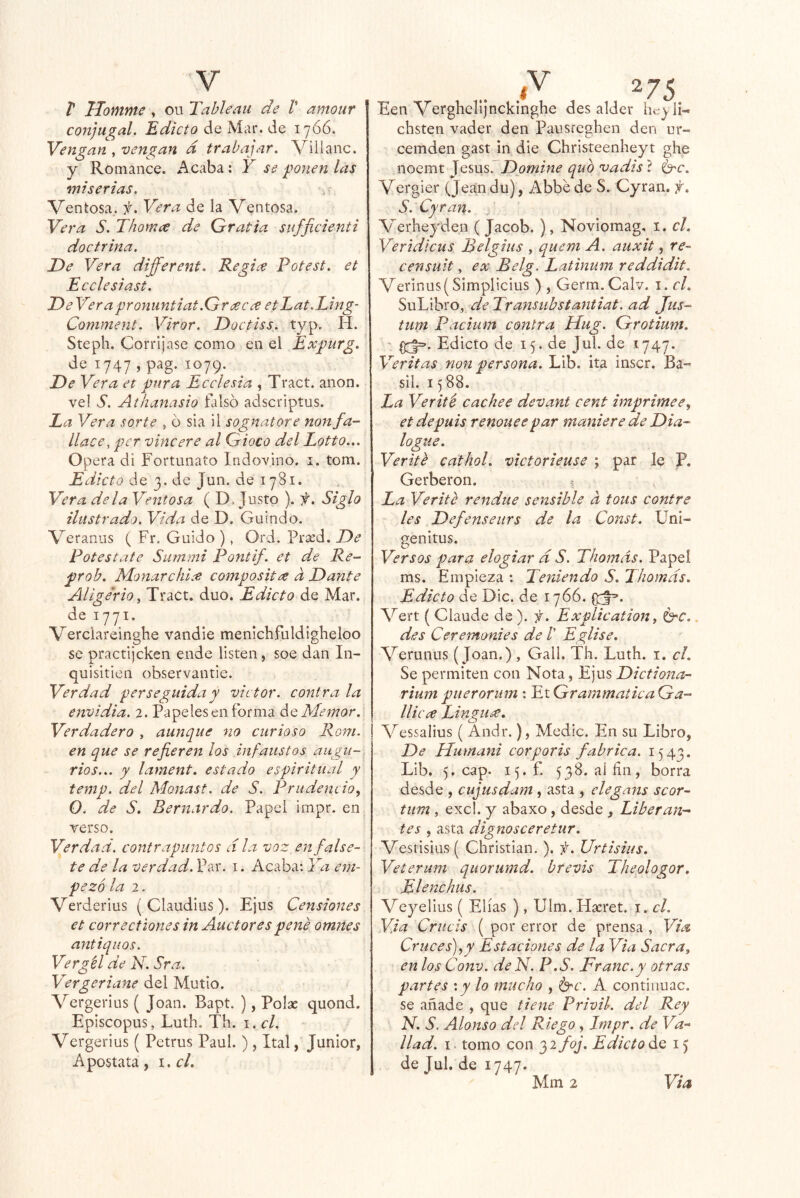 V
l' Homme , ou Tableau de l' amour
conjugal. Edicto de Mar. de 1766.
Vengan , vengan á trabajar. Villanc.
y Romance. Acaba: Y se ponen las
miserias.
Ventosa. ℣. Vera de la Ventosa.
Vera S. Thomæ de Gratia sufficienti
doctrina.
De Vera different. Regiæ Potest. et
Ecclesiast.
De Vera pronuntiat. Græcæ et Lat. Ling-
Comment. Viror. Doctiss. typ. H.
Steph. Corrijase como en el Expurg.
de 1747 , pag. 1079.
De Vera et pura Ecclesia , Tract. anon.
vel S. Athanasio falsò adscriptus.
La Vera sorte , ò sia il sognatore non fa-
llace, per vincere al Gioco del Lotto...
Opera di Fortunato Indovino. 1. tom.
Edicto de 3. de Jun. de 1781.
Vera de la Ventosa ( D. Justo ). ℣. Siglo
ilustrado. Vida de D. Guindo.
Veranus ( Fr. Guido ) , Ord. Præd. De
Potestate Summi Pontif. et de Re-
prob. Monarchiæ compositæ à Dante
Aligerio, Tract. duo. Edicto de Mar.
de 1771.
Verclareinghe vandie menichfuldigheloo
se practijcken ende listen, soe dan In-
quisitien observantie.
Verdad perseguida y victor. contra la
envidia. 2. Papeles en forma de Memor.
Verdadero , aunque no curioso Rom.
en que se refieren los infaustos augu-
rios... y lament. estado espiritual y
temp. del Monast. de S. Prudencio,
O. de S. Bernardo. Papel impr. en
verso.
Verdad. contrapuntos á la voz en false-
te de la verdad. Par. 1. Acaba: Ya em-
pezó la 2.
Verderius ( Claudius ). Ejus Censiones
et correctiones in Auctores penè omnes
antiquos.
Vergél de N. Sra.
Vergeriane del Mutio.
Vergerius ( Joan. Bapt. ) , Polæ quond.
Episcopus, Luth. Th. 1. cl.
Vergerius ( Petrus Paul. ) , Ital, Junior,
Apostata , 1. cl.
V 275
Een Verghelijnckinghe des alder heyli-
chsten vader den Pausreghen den ur-
cemden gast in die Christeenheyt ghe
noemt Jesus. Domine quò vadis? &c.
Vergier (Jean du), Abbè de S. Cyran. ℣.
S. Cyran.
Verheyden ( Jacob. ), Noviomag. 1. cl.
Veridicus Belgius , quem A. auxit , re-
censuit , ex Belg. Latinum reddidit.
Verinus ( Simplicius ) , Germ. Calv. 1. cl.
Su Libro, de Transubstantiat. ad Jus-
tum Pacium contra Hug. Grotium.
☞. Edicto de 15. de Jul. de 1747.
Veritas non persona. Lib. ita inscr. Ba-
sil. 1588.
La Verité cachee devant cent imprimee,
et depuis renouee par maniere de Dia-
logue.
Veritè cathol. victorieuse ; par le P.
Gerberon.
La Veritè rendue sensible à tous contre
les Defenseurs de la Const. Uni-
genitus.
Versos para elogiar á S. Thomás. Papel
ms. Empieza : Teniendo S. Thomás.
Edicto de Dic. de 1766. ☞.
Vert ( Claude de ). ℣. Explication, &c.
des Ceremonies de l' Eglise.
Verunus ( Joan. ) , Gall. Th. Luth. 1. cl.
Se permiten con Nota, Ejus Dictiona-
rium puerorum : Et Grammatica Ga-
llicæ Linguæ.
Vessalius ( Andr. ), Medic. En su Libro,
De Humani corporis fabrica. 1543.
Lib. 5. cap. 15. f. 538. al fin, borra
desde , cujusdam , asta , elegans scor-
tum , excl. y abaxo , desde , Liberan-
tes , asta dignosceretur.
Vestisius ( Christian. ). ℣. Urtisius.
Veterum quorumd. brevis Theologor.
Elenchus.
Veyelius ( Elías ) , Ulm. Hæret. 1. cl.
Via Crucis ( por error de prensa , Via
Cruces), y Estaciones de la Via Sacra,
en los Conv. de N. P. S. Franc. y otras
partes : y lo mucho , &c. A continuac.
se añade , que tiene Privil. del Rey
N. S. Alonso del Riego , Impr. de Va-
llad. 1 tomo con 32 foj. Edicto de 15
de Jul. de 1747.
Mm 2 Via